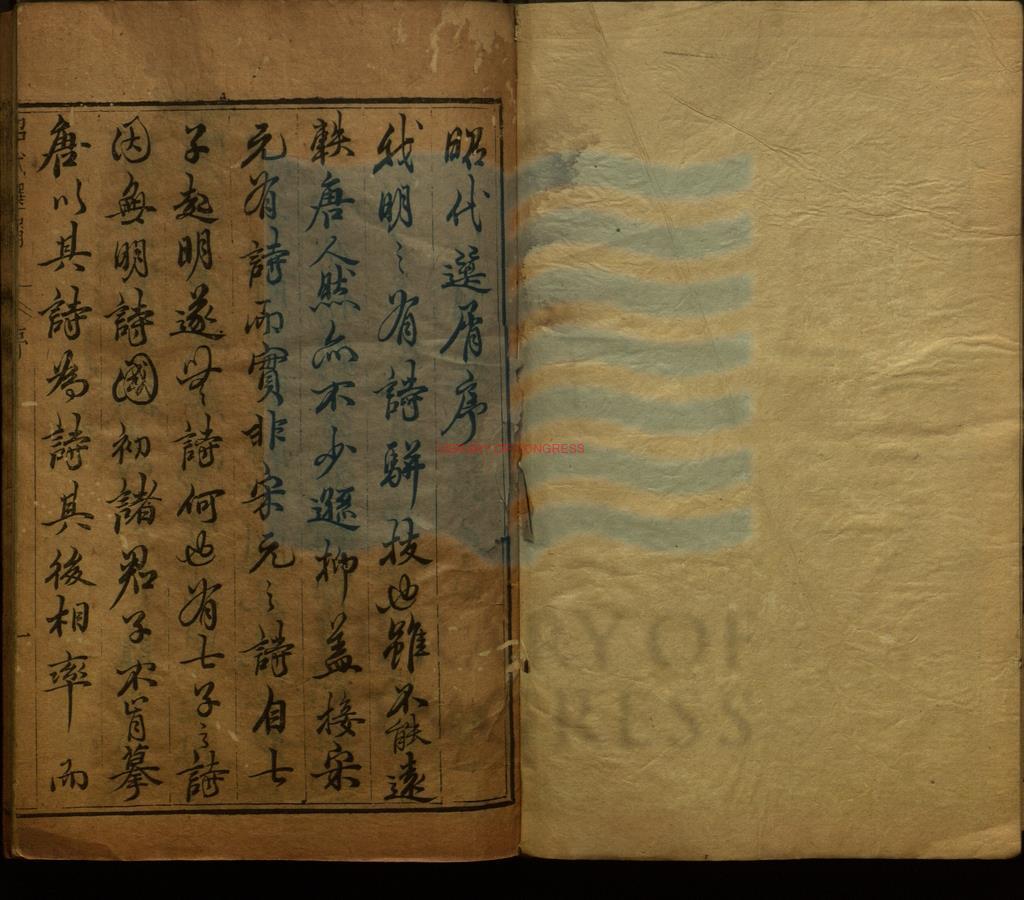 昭代選屑序
我明之有詩駢技也雖不能遠
軼唐人然亦不少遜抑蓋接宋
元有詩而實非宋元之詩自七
子起明遂無詩何也有七子之詩
因無明詩國初諸君子不肯摹
唐以其詩為詩其後相率而
昭代選屑
LIBRARY OF CONGRESS
RY OF
RESS